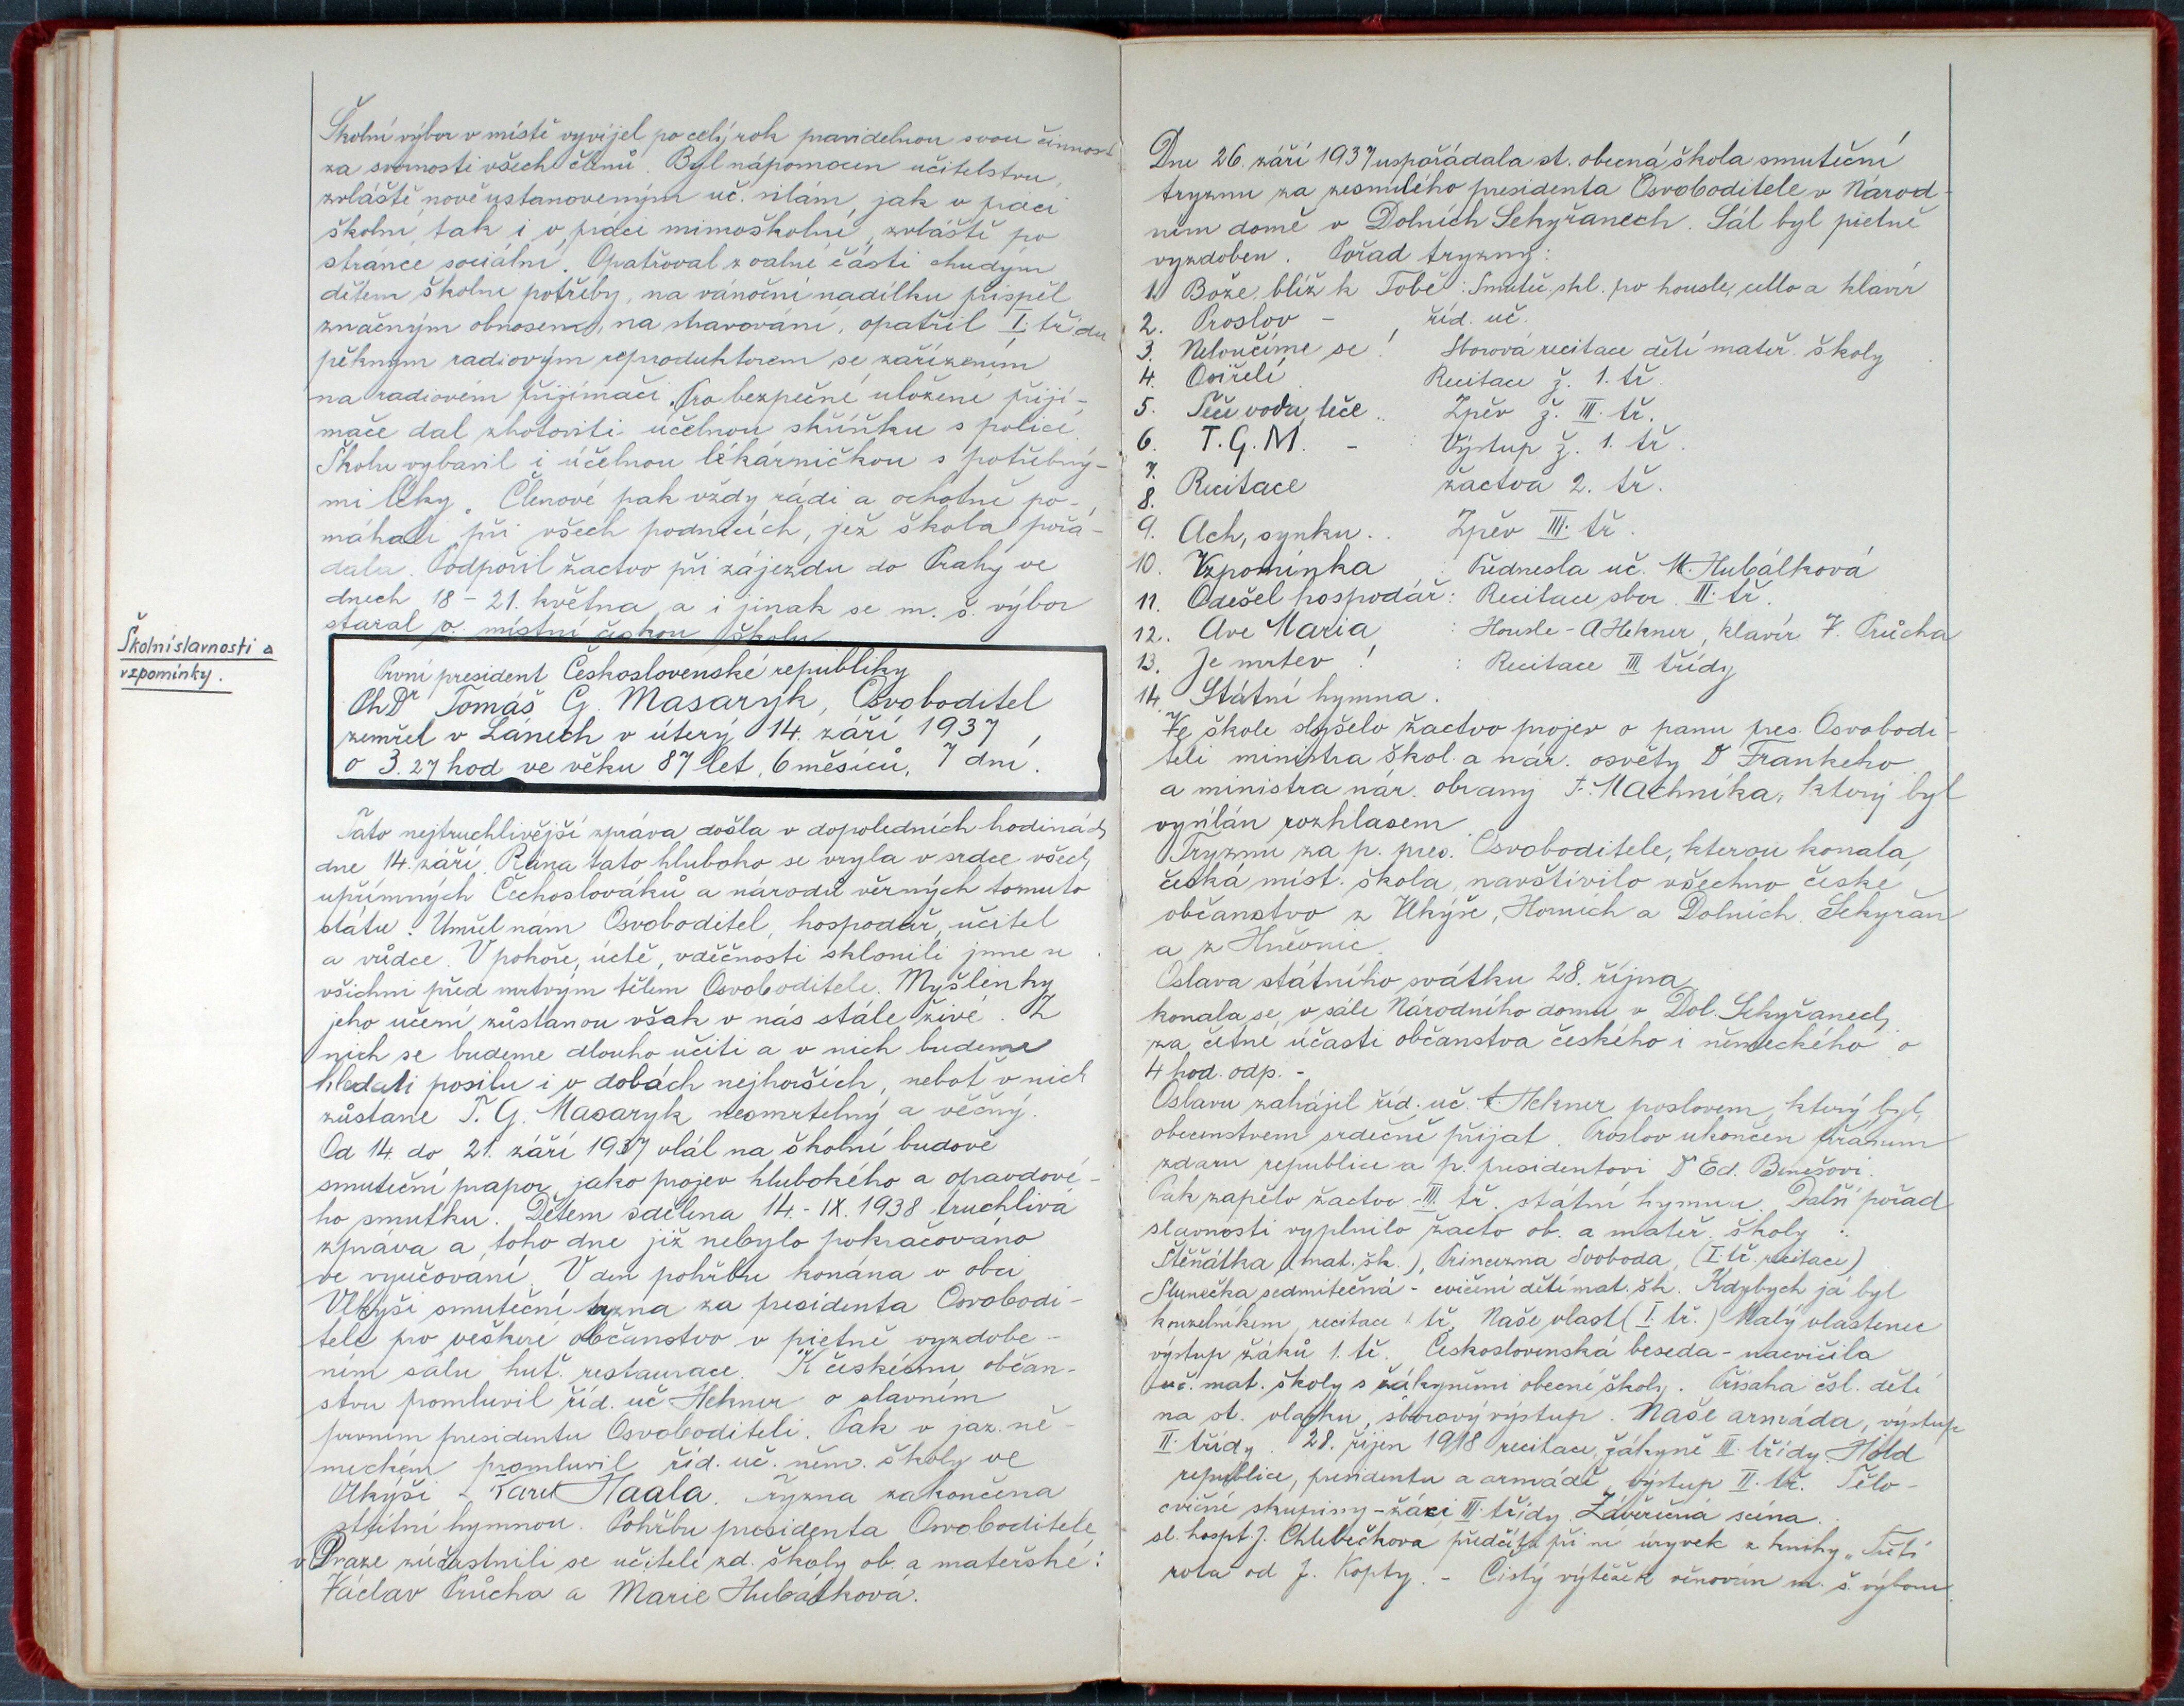 Školní výbor v místě vyvíjel po celý rok pravidelnou svou činnost
za svornosti všech členů. Byl nápomocen učitelstvu,
zvláště nově ustanoveným uč. silám, jak v práci
školní, tak i v práci mimoškolní, zvláště po
stránce sociální. Opatřoval z valné části chudým
dětem školní potřeby, na vánoční nadílku přispěl
značným obnosem, na stravování, opatřil I. třídu
pěkným radiovým reproduktorem se zařízením
na radiovém přijímači. Pro bezpečné uložení přijí-
mače dal zhotoviti účelnou skříňku s policí.
Školu vybavil i účelnou lékárničkou s potřebný-
mi léky. Členové pak vždy rádi a ochotně po-
máhali při všech podnicích, jež škola pořá-
dala. Podpořil žactvo při zájezdu do Prahy ve
dnech 18 - 21. května a i jinak se m. š. výbor
staral o místní českou školu
Školní slavnosti a
vzpomínky.
První president Československé republiky
PhDr Tomáš G. Masaryk, Osvoboditel
zemřel v Lánech v úterý 14. září 1937,
o 3.27 hod ve věku 87 let, 6 měsíců, 7 dní.
Tato nejtruchlivější zpráva došla v dopoledních hodinách
dne 14. září. Rána tato hluboko se vryla v srdce všech
upřímných Čechoslováků a národů věrných tomuto
státu. Umřel nám Osvoboditel, hospodář, učitel
a vůdce. V pokoře, úctě, vděčnosti sklonili jsme se
všichni před mrtvým tělem Osvoboditele. Myšlenky
jeho učení zůstanou však v nás stále živé. Z
nich se budeme dlouho učiti a v nich budeme
hledati posilu i v dobách nejhorších, neboť v nich
zůstane T. G. Masaryk nesmrtelný a věčný.
Od 14. do 21. září 1937 vlál na školní budově
smuteční prapor jako projev hlubokého a opravdové-
ho smutku. Dětem sdělena 14.- IX. 1938 truchlivá
zpráva a toho dne již nebylo pokračováno
ve vyučování. V den pohřbu konána v obci
Vlkýši smuteční tryzna za presidenta Osvobodi-
tele pro veškeré občanstvo v pietně vyzdobe-
ním sálu huť. restaurace. K českému občan-
stvu promluvil říd. uč Hekner o slavném
prvním presidentu Osvoboditeli. Pak v jaz. ně-
meckém promluvil říd. uč. něm. školy ve
Vlkýši - Karel Haala. Tryzna zakončena
státní hymnou. Pohřbu presidenta Osvoboditele
v Praze zúčastnili se učitelé zd. školy ob. a mateřské:
Václav Průcha a Marie Hubálková.
Dne 26. září 1937 uspořádala st. obecná škola smuteční
tryznu za zesnulého presidenta Osvoboditele v Národ-
ním domě v Dolních Sekyřanech. Sál byl pietně
vyzdoben. Pořad tryzny:
1. Bože, blíž k Tobě: Smuteč. skl. pro housle, cello a klavír
2. Proslov - říd. uč.
3. Neloučíme se! Sborová recitace dětí mateř. školy
4. Osiřelí Recitace ž. 1. tř.
5. Teče voda, teče.. Zpěv ž. III. tř.
6. T. G. M. - Výstup ž. 1. tř.
7.
8. Recitace žactva 2. tř.
9. Ach, synku.. Zpěv III. tř.
10. Vzpomínka : Přednesla uč. M. Hubálková
11. Odešel hospodář: Recitace sbor. II. tř.
12. Ave Maria : Housle - A Hekner, klavír V. Průcha
13. Je mrtev! : Recitace III. třídy
14. Státní hymna.
Ve škole slyšelo žactvo projev o panu pres. Osvobodi-
teli ministra škol. a nár. osvěty Dr Frankeho
a ministra nár. obrany F. Machníka, který byl
vysílán rozhlasem
Tryznu za p. pres. Osvoboditele, kterou konala
česká míst. škola, navštívilo všechno české
občanstvo z Vlkýše, Horních a Dolních Sekyřan
a z Hněvnic.
Oslava státního svátku 28. října
konala se v sále Národního domu v Dol. Sekyřanech
za četné účasti občanstva českého i německého o
4 hod. odp. -
Oslavu zahájil říd. uč. A Hekner proslovem, který byl
obecenstvem srdečně přijat. Proslov ukončen přáním
zdaru republice a p. presidentovi Dr Ed. Benešovi.
Pak zapělo žactvo III. tř. státní hymnu. Další pořad
slavnosti vyplnilo žacto ob. a mateř. školy:
Štěňátka (mat. šk.), Princezna Svoboda, (I. tř. recitace)
Slunečka sedmitečná - cvičení dětí mat. šk. Kdybych já byl
kouzelníkem, recitace 1. tř., Naše vlast (I. tř.) Malý vlastenec
výstup žáků 1. tř. Československá beseda - nacvičila
uč. mat. školy s žákyněmi obecné školy. Přísaha čsl. dětí
na st. vlajku, sborový výstup. Naše armáda, výstup
II. třídy. 28. říjen 1918 recitace žákyně III. třídy. Hold
republice, presidentu a armádě, výstup II. tř. Tělo-
cvičné skupiny - žáci III. třídy. Závěrečná scéna.
sl. hospt. J. Chlebečkova předčítá při ní úryvek z knihy „Třetí
rota od J. Kopty. - Čistý výtěžek věnován m. š. výboru.